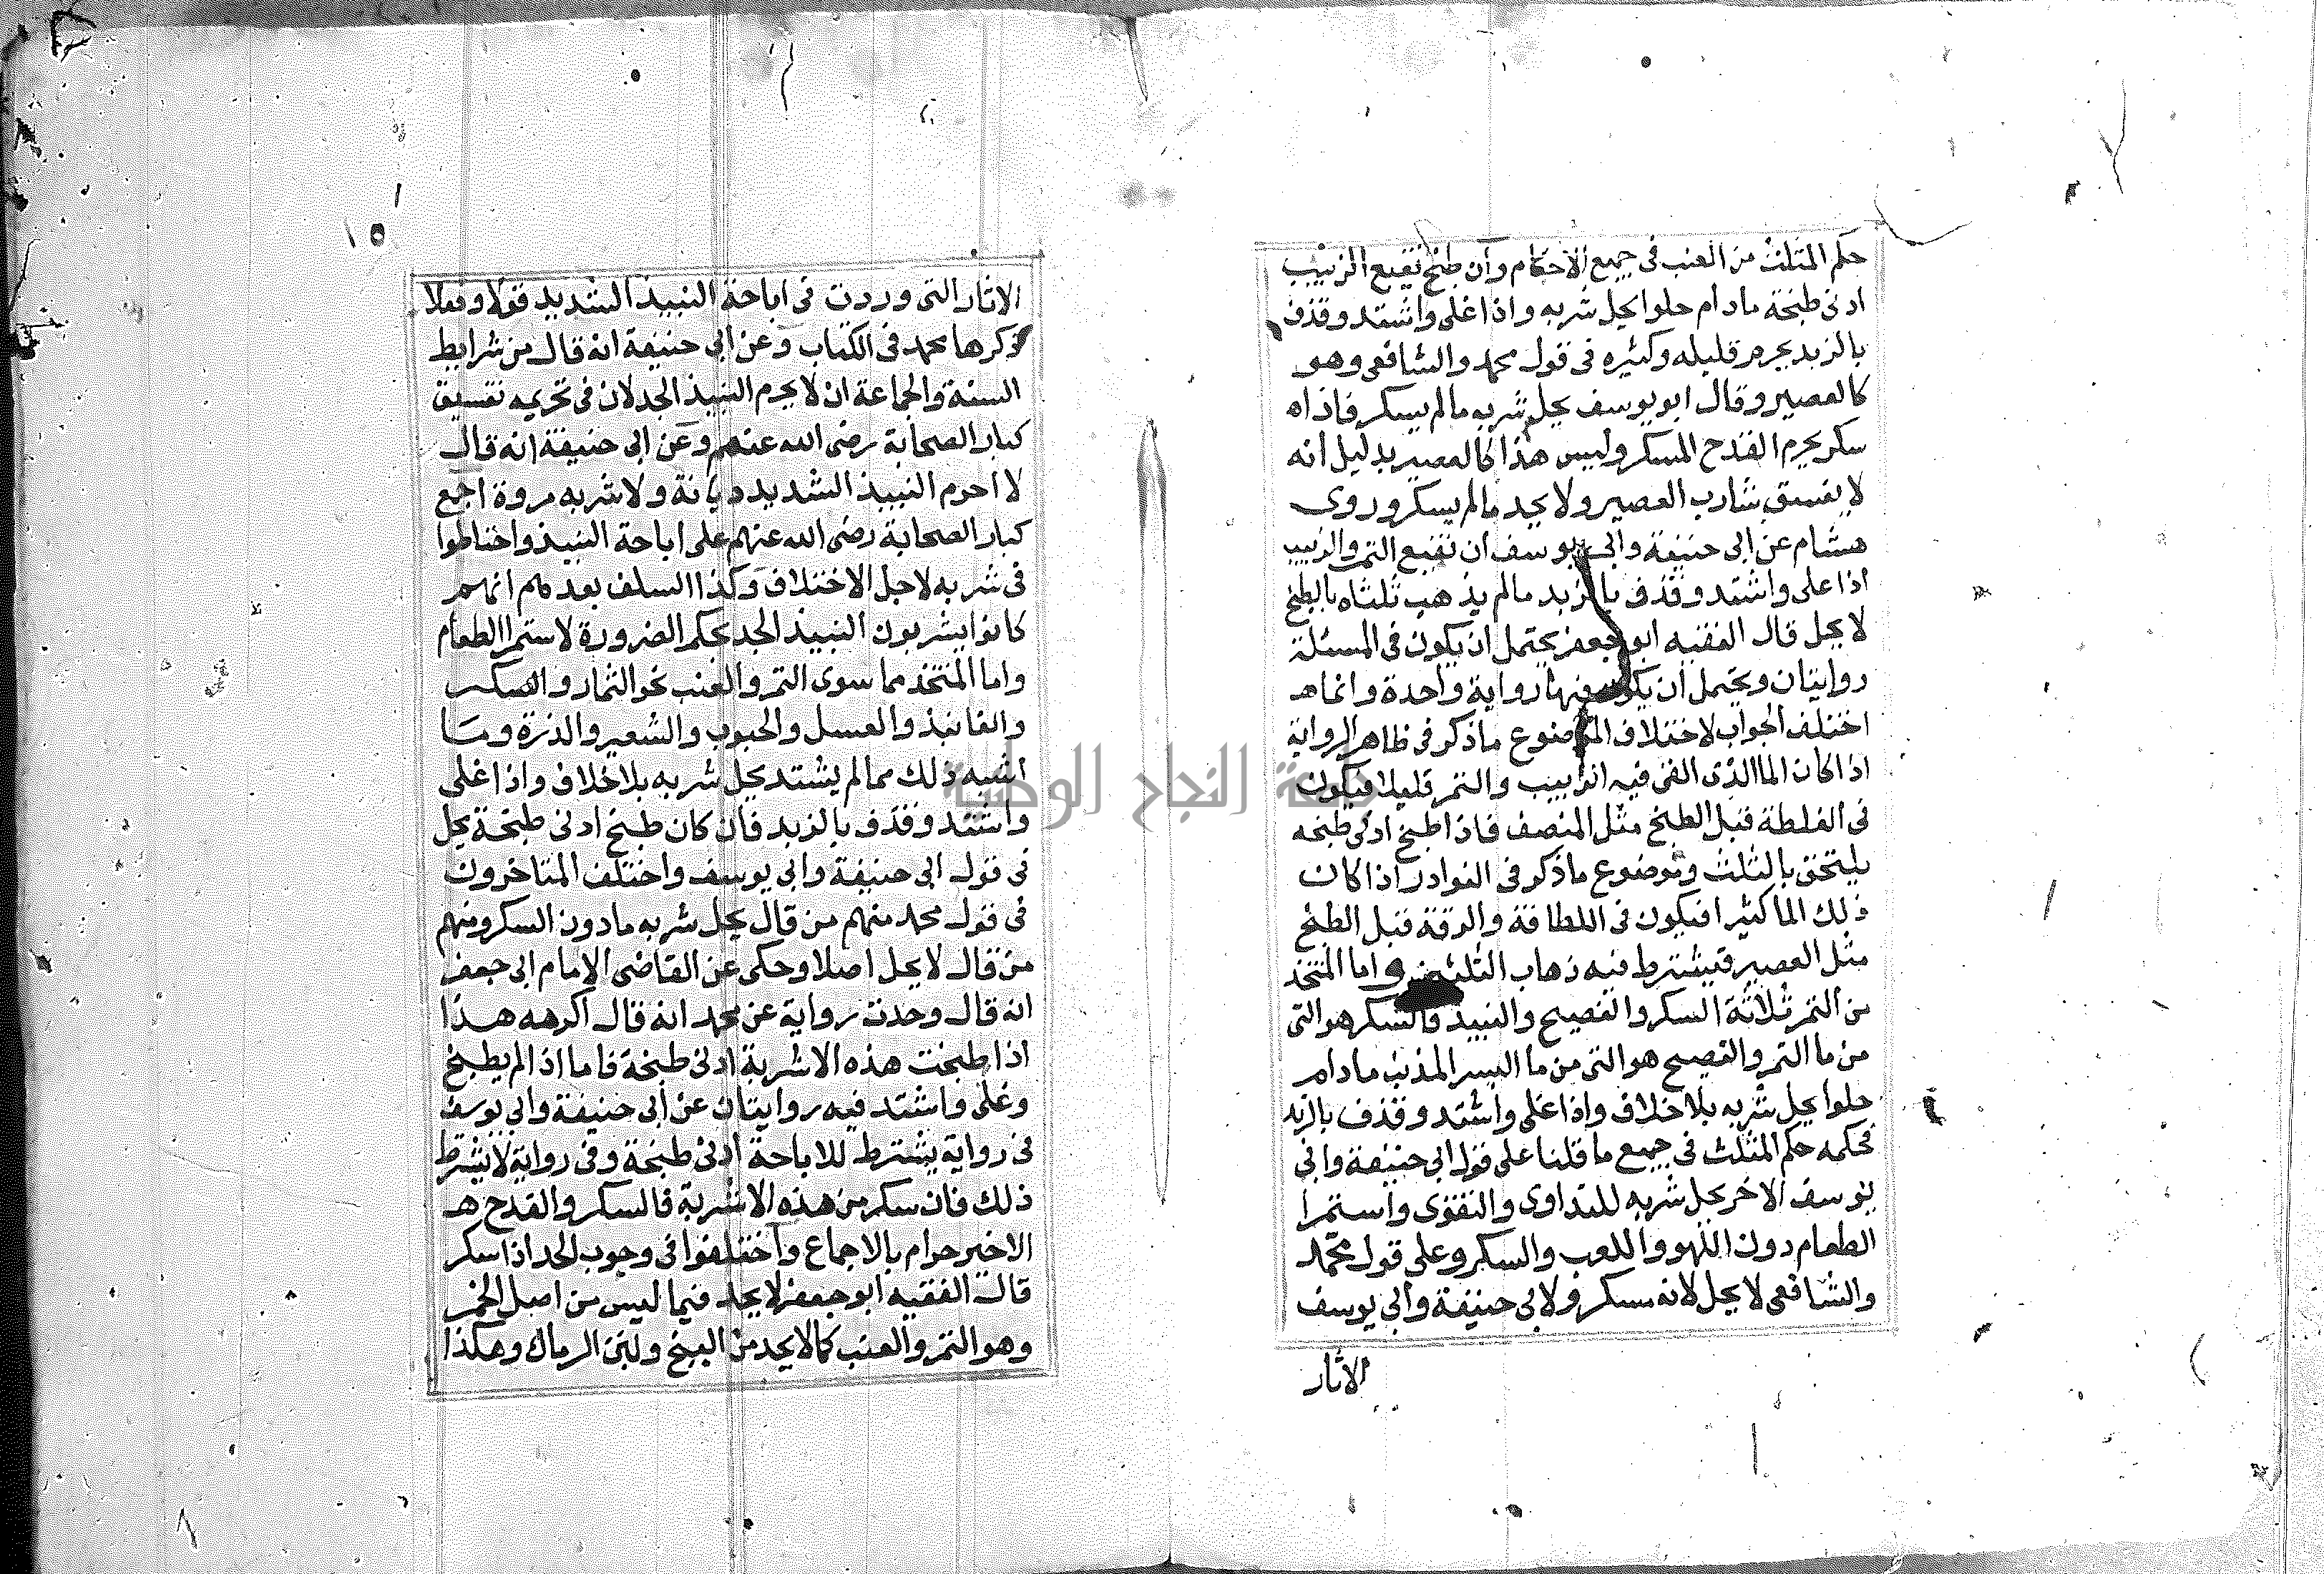 حكم المثلث من العنب فى جميع الاحكام وان طبخ نقيع الزبيب
ادنى طبخة مادام حلوا يحل شربه واذا غلى واشتد وقذف
بالزبد يحرم قليله وكثيره فى قول محمد والشافعى وهو
كالعصير وقال ابو يوسف يحل شربه مالم يسكر فاذاه
سكر يحرم القدح المسكر وليس هذا كالعصير بدليل انه
لا يفسق شارب العصير ولا يحد مالم يسكر وروى
هشام عن ابى حنيفة وابى يوسف ان نقيع التمر والزبيب
اذا غلى واشتد وقذف بالزبد مالم يذهب ثلثاه بالطبخ
لا يحل قال الفقيه ابو جعفر يحتمل ان يكون فى المسئلة
روايتان ويحتمل ان يكون فيها رواية واحدة وانما هـ
اختلف الجواب لاختلاف الموضوع ماذكر فى ظاهر الرواية
اذا كان الما الذى القى فيه الزبيب والتمر قليلا فيكون
فى الغلظة قبل الطبخ مثل المنصف فاذا طبخ ادنى طبخه
يلتحق بالثلث وموضوع ماذكر فى النوادر اذا كان
ذلك الما كثيرا فيكون فى اللطافة والرقة قبل الطبخ
مثل العصير فيشترط فيه ذهاب الثلثين واما المتخذ
من التمر ثلاثة السكر والفضيح والنبيذ فالسكر هو التى
من ما التمر والفضيح هو التى من ما البسر المذنب مادام
حلوا يحل شربه بلا خلاف واذا غلى واشتد وقذف بالزبد
فحكمه حكم المثلث فى جميع ما قلنا على قول ابى حنيفة وابى
يوسف الاخر يحل شربه للتداوى والتقوى واستمرا
الطعام دون اللهو واللعب والسكر وعلى قول محمد
والشافعى لا يحل لانه مسكر ولابى حنيفة وابى يوسف
الاثار
١٥١
الاثار التى وردت فى اباحة النبيذ الشديد قولا وفعلا
ذكرها محمد فى الكتاب وعن ابى حنيفة انه قال من شرايط
السنة والجماعة ان لا يحرم النبيذ الجد لان فى تحريمه تفسيق
كبار الصحابة رضى الله عنهم وعن ابى حنيفة انه قال
لا احرم النبيذ الشديد ديانة ولا شربه مروة اجمع
كبار الصحابة رضى الله عنهم على اباحة النبيذ واحتاطوا
فى شربه لاجل الاختلاف وكذا السلف بعدهم انهم
كانوا يشربون النبيذ الجد بحكم الضرورة لاستمرا الطعام
واما المتخذ مما سوى التمر والعنب نحو الثمار والسكر
والفانيذ والعسل والحبوب والشعير والذرة وما
اشبه ذلك مما لم يشتد يحل شربه بلا خلاف واذا غلى
واشتد وقذف بالزبد فان كان طبخ ادنى طبخة يحل
فى قول ابى حنيفة وابى يوسف واختلف المتاخرون
فى قول محمد منهم من قال يحل شربه مادون السكر ومنهم
من قال لا يحل اصلا وحكى عن القاضى الامام ابى جعفر
انه قال وجدت رواية عن محمد انه قال اكره هذا
اذا طبخت هذه الاشربة ادنى طبخة فاما اذا لم يطبخ
وغلى واشتد فيه روايتان عن ابى حنيفة وابى يوسف
فى رواية يشترط للاباحة ادنى طبخة وفى رواية لا يشترط
ذلك فان سكر من هذه الاشربة فالسكر والقدح هـ
الاخير حرام بالاجماع واختلفوا فى وجوب الحد اذا سكر
قال الفقيه ابو جعفر لا يحد فيما ليس من اصل الخمر
وهو التمر والعنب كما لا يحد من البنج ولبن الرماك وهكذا
جامعة النجاح الوطنية